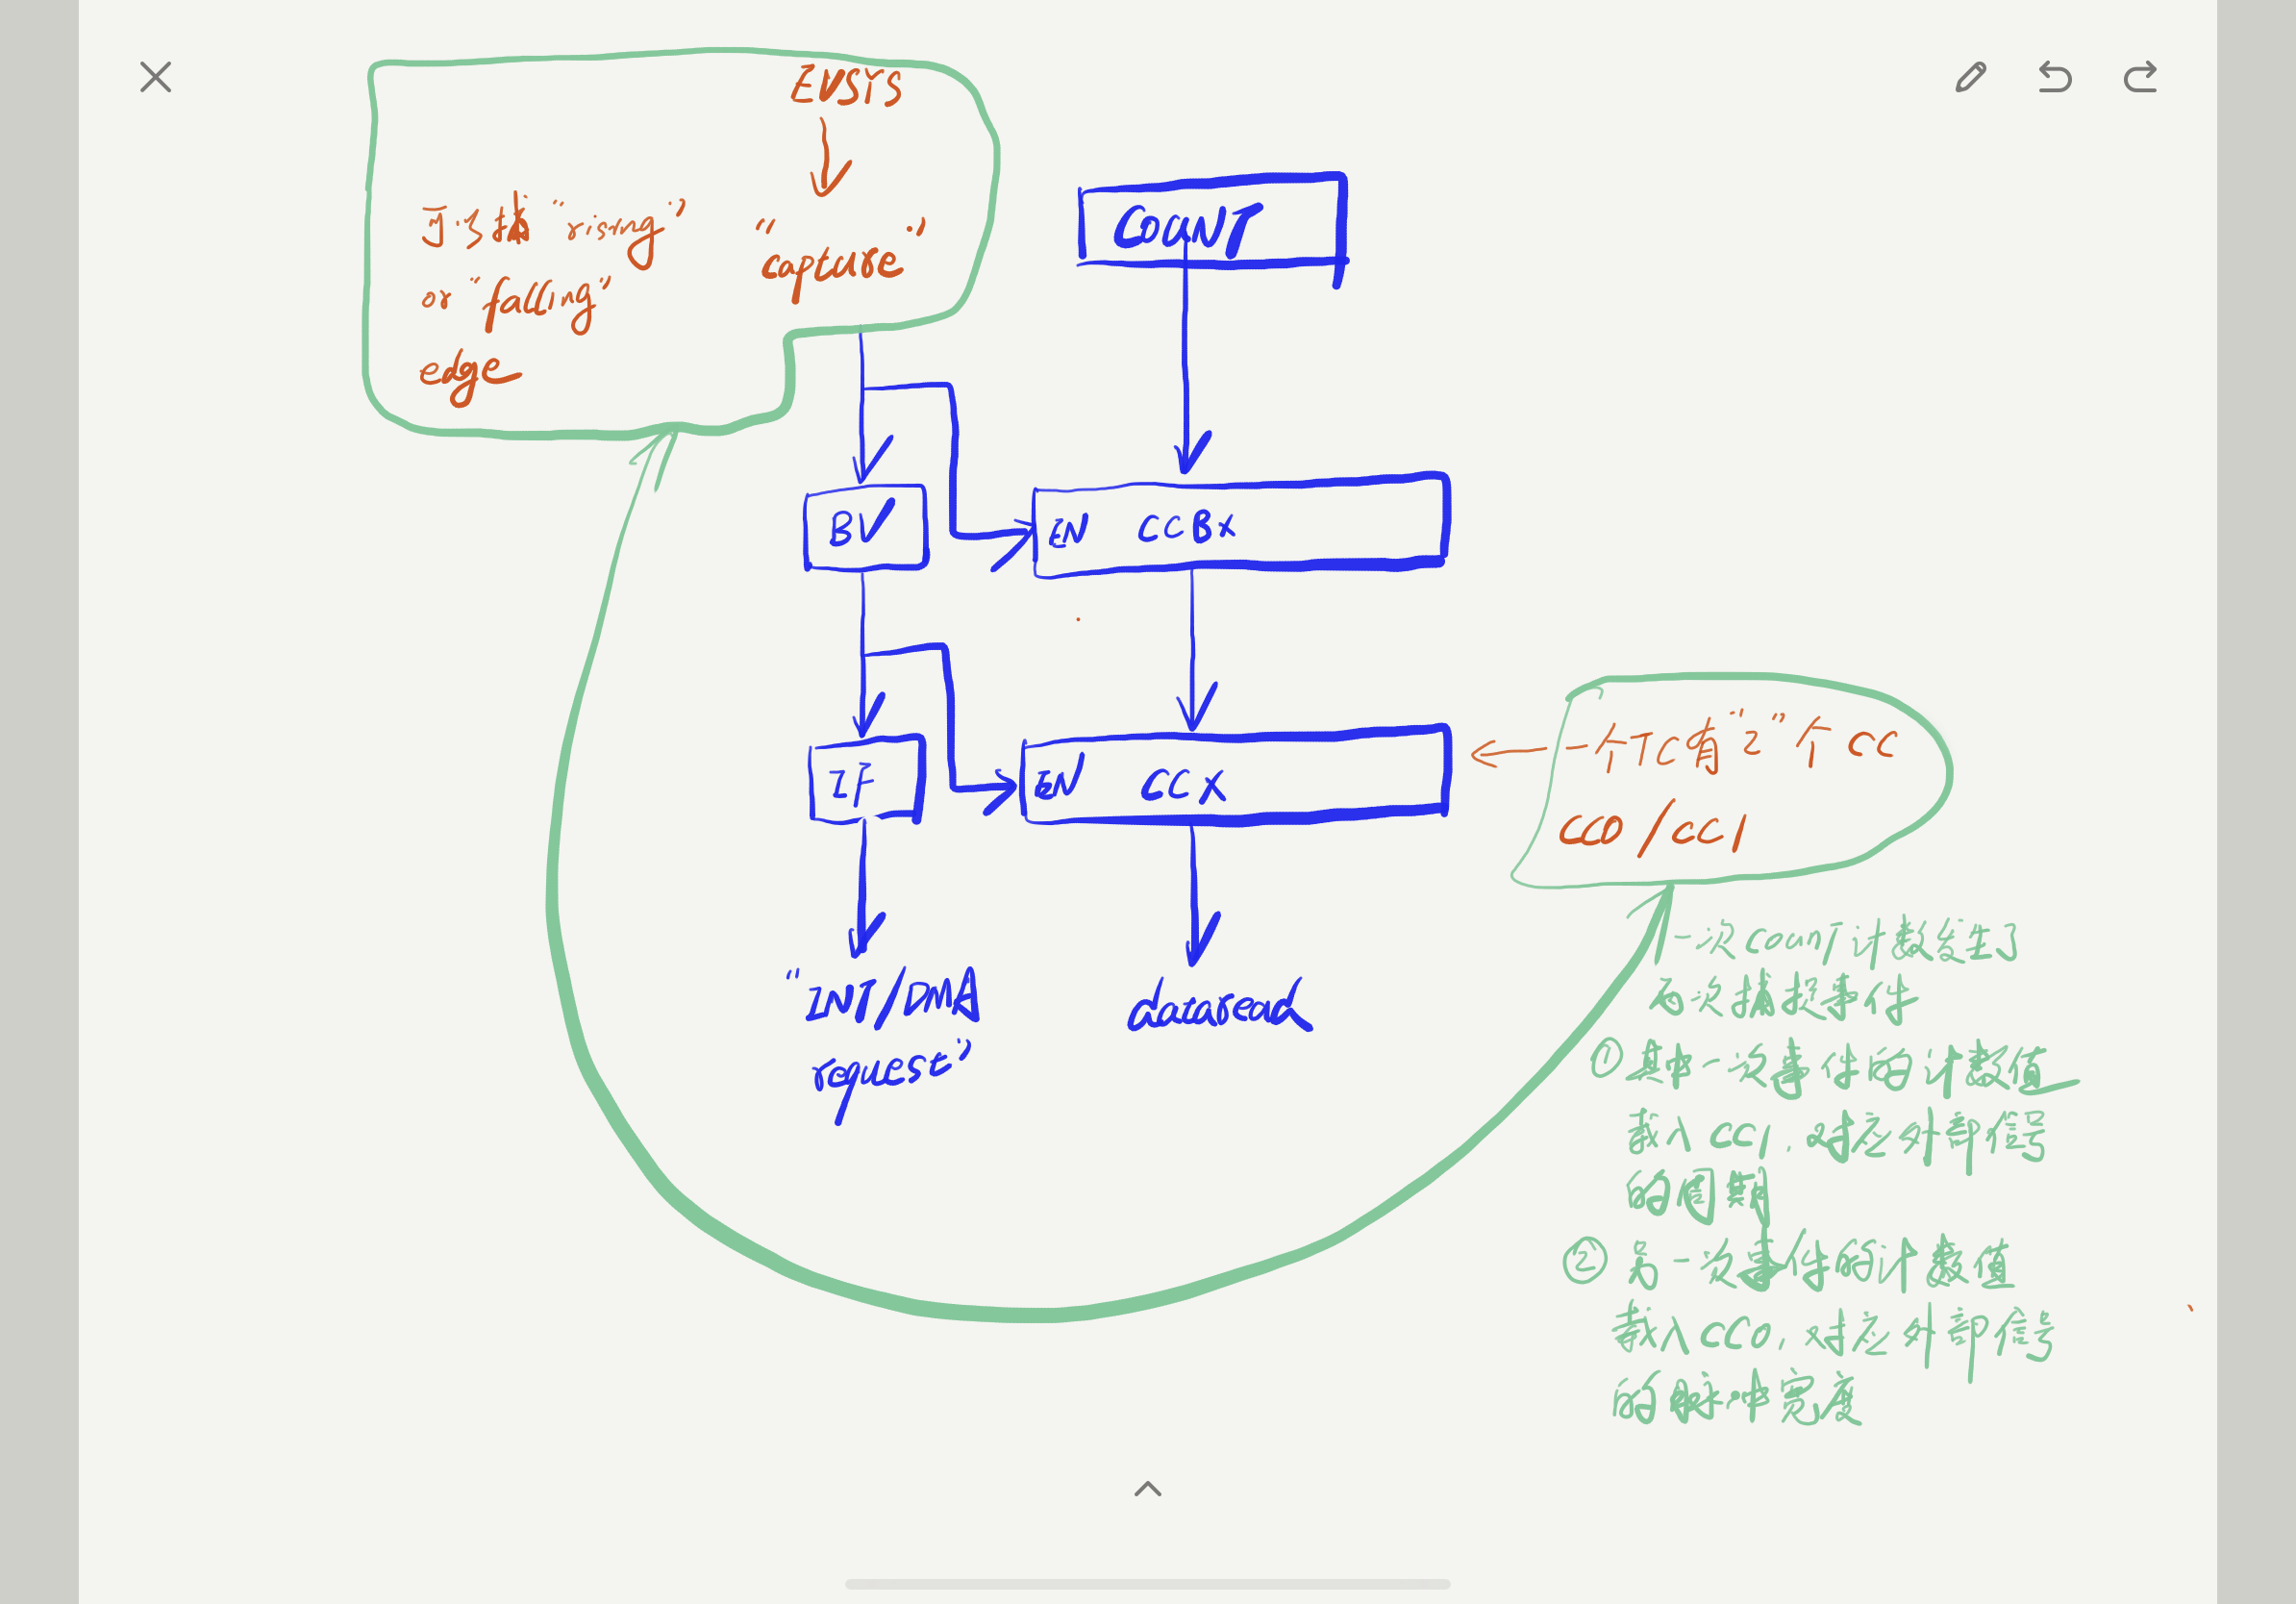 EVSYS
"capture"
可以捕 "rising"
or "falling"
edge
COUNT
BV
EN CCBX
IF
EN CCX
"INT/DMA
request"
dataread
一个TC有"2"个 CC
CC0/CC1
一次count计数发生了
两次捕捉事件
① 其中一次事件的计数值
载入CC1,对应外部信号
的周期
② 另一次事件的计数值
载入CC0,对应外部信号
的脉冲宽度